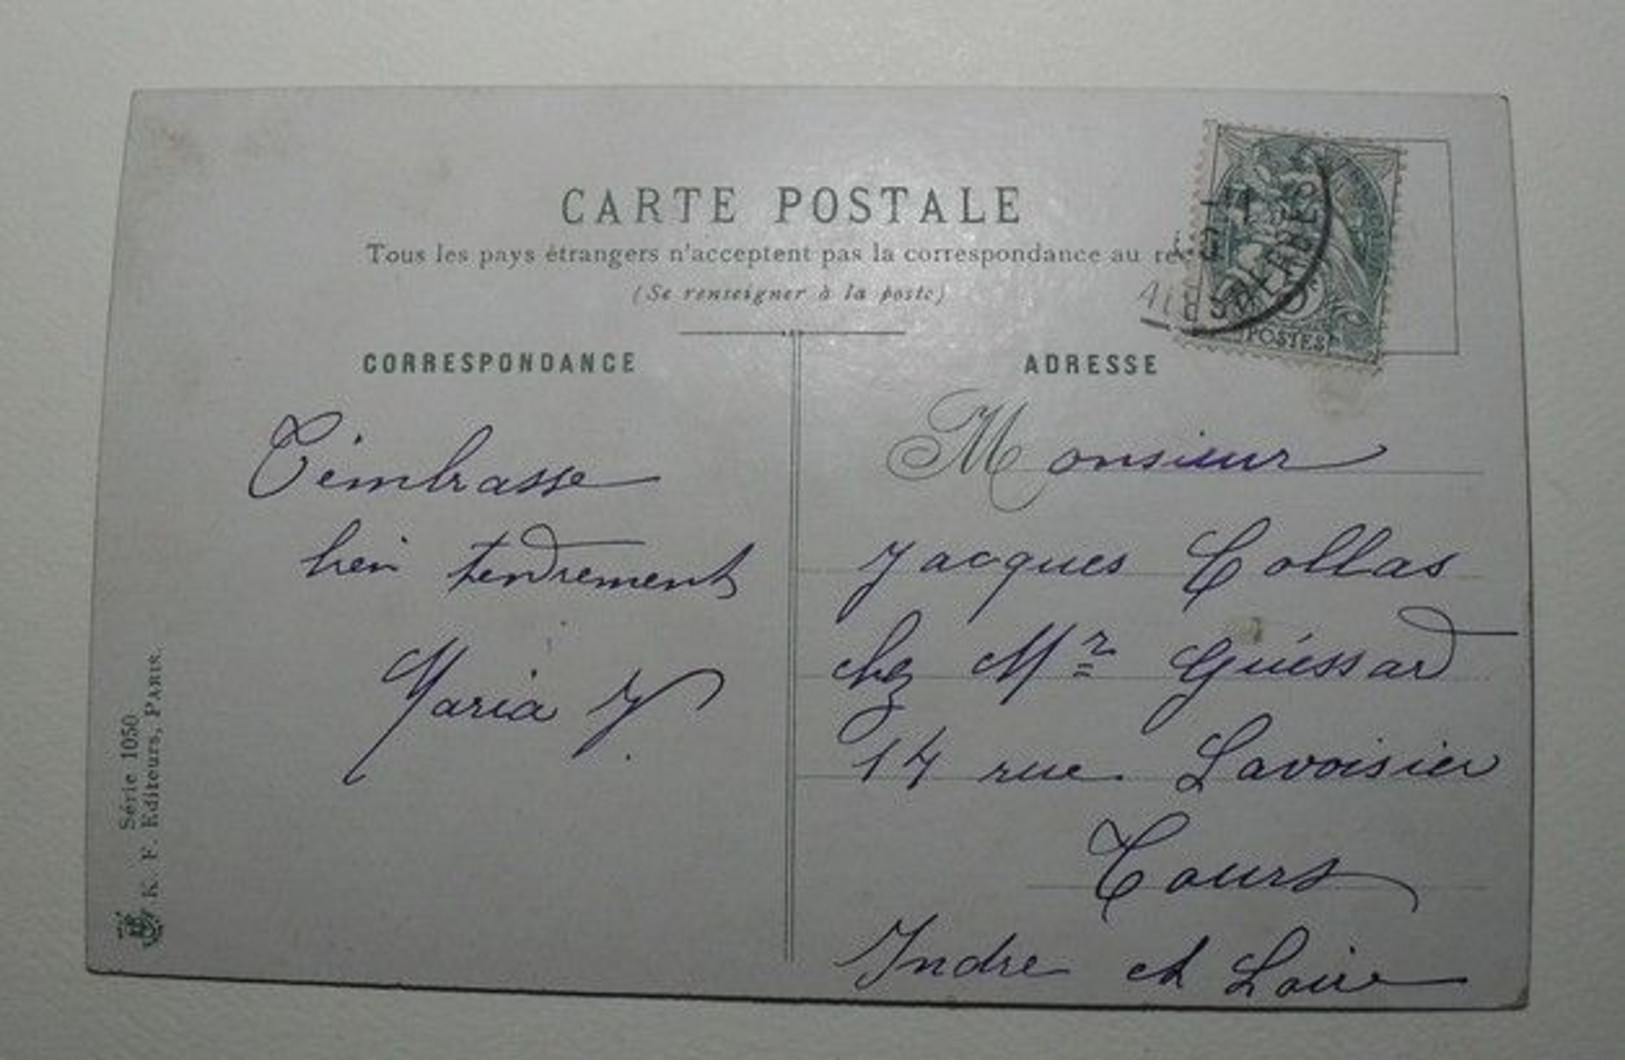 CARTE POSTALE
Tous les pays étrangers n'acceptent pas la correspondance au
(Se renseigner à la poste)
CORRESPONDANCE
T'embrasse
bien tendrement
Maria J.
ADRESSE
Monsieur
Jacques Collas
chez Mr Guéssard
14 rue Lavoisier
Tours
Indre et Loire
POSTES
Série 1050
K. F. Editeurs, PARIS.